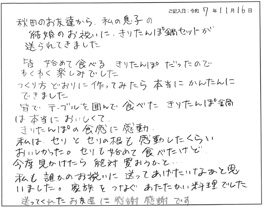 ご記入日:令和 7年11月16日
秋田のお友達から、私の息子の
結婚のお祝いに、きりたんぽ鍋セットが
送られてきました
皆 始めて食べる きりたんぽ だったので
もくもく楽しみでした
つくり方どおりに作ってみたら 本当に かんたんに
できました
皆で テーブルを囲んで 食べた きりたんぽ鍋
は本当に おいしくて、
きりたんぽの食感に感動、
私は セリ と セリの根も 感動したくらい
おいしかった。セリも始めて食べたけど
今度見かけたら 絶対買おうかと…
私も誰かのお祝いに 送ってあげたいなあと思
いました。家族をつなぐ あたたかい料理でした
送ってくれたお友達に 感謝感謝です